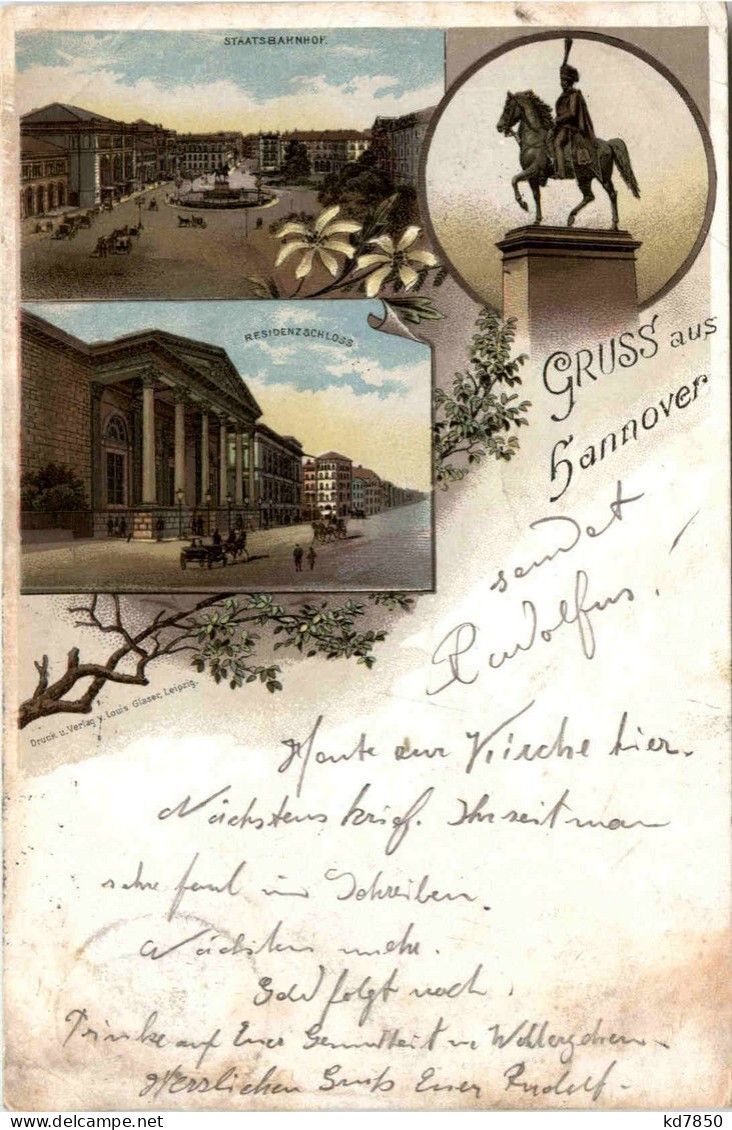 STAATSBAHNHOF.
RESIDENZSCHLOSS
GRUSS aus
Hannover
sendet
Rudolfus!
Druck u. Verlag v. Louis Glaser, Leipzig.
Heute zur Kirche hier.
Nächstens Brief. Ihr seit man
sehr faul im Schreiben.
Nächstens mehr.
Geld folgt noch.
Trinke auf Euer Gesundheit
Herzlichen Gruß Euer Rudolf.
kd7850